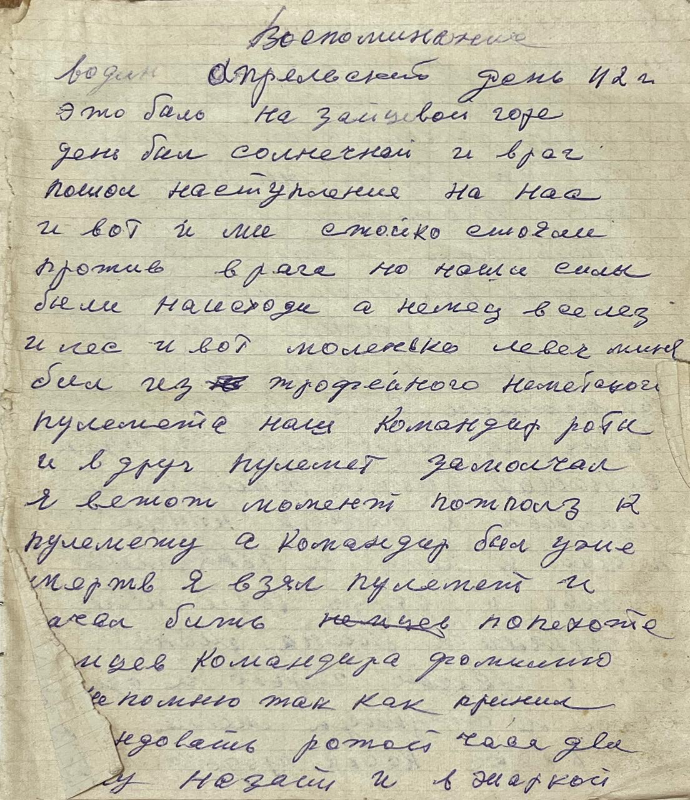 Воспоминание
водин Апрельский день 42 г
это было на зайцевой горе
день был солнечной и враг
пошол наступления на нас
и вот и ми стойко стояли
против врага но наши силы
были наисходи а немец все лез
и лес и вот моленько левеч миня
бил из трофейного неметского
пулемета наш Командир роти
и вдруг пулемет замолчал
я ветот момент потполз к
пулемету а Командир был уже
мертв я взял пулемет и
ачал бить немцев попехоте
мцев Командира фомилию
не помню так как принил
ндовать ротой часа два
му назати и в жаркой